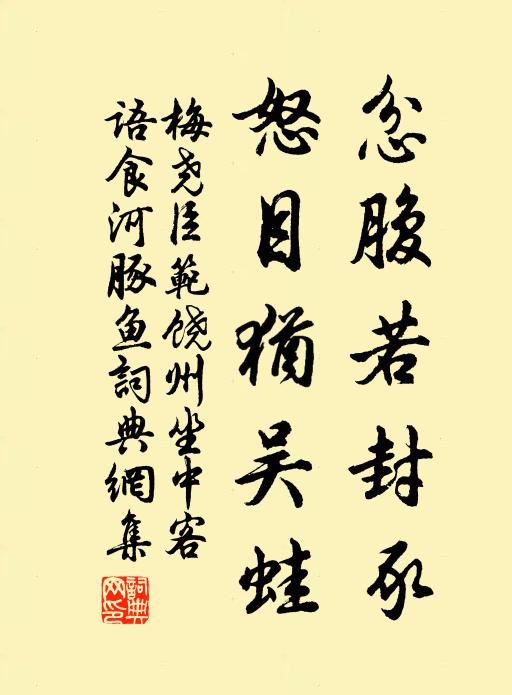 忿腹若封豕
怒目猶吴蛙
梅尧臣範饶州坐中客
语食河豚鱼詞典網集
詞典网印